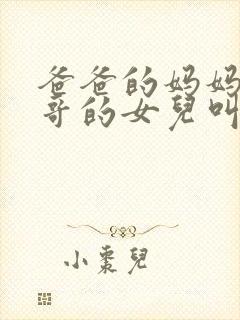 爸爸的妈妈
哥的女兒叫
小棗兒